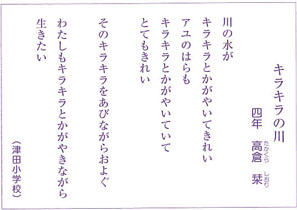 キラキラの川
四年 高倉 栞
川の水が
キラキラとかがやいてきれい
アユのはらも
キラキラとかがやいていて
とてもきれい
そのキラキラをあびながらおよぐ
わたしもキラキラとかがやきながら
生きたい
（津田小学校）